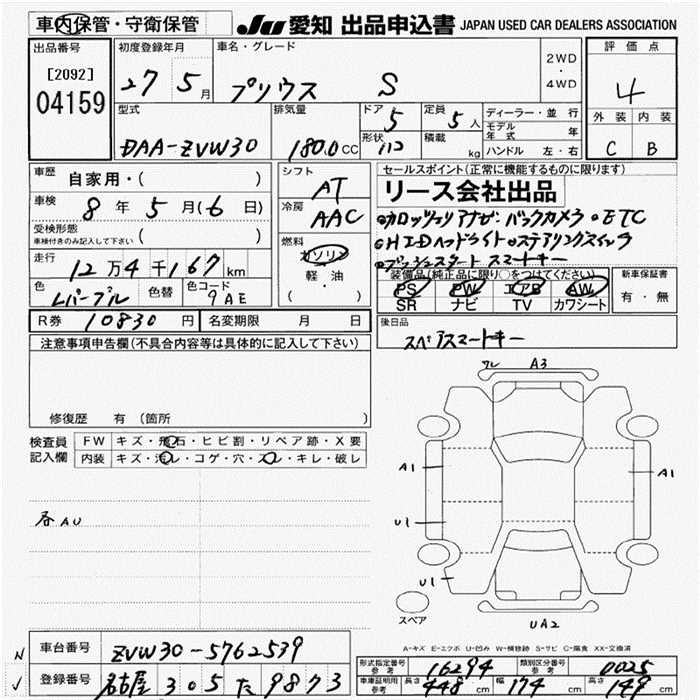 車内保管・守衛保管
JU 愛知 出品申込書 JAPAN USED CAR DEALERS ASSOCIATION
出品番号
[2092]
04159
初度登録年月
27 5月
車名・グレード
プリウス S
2WD
・
4WD
評価点
4
外装 内装
C B
型式
DAA-ZVW30
排気量
1800cc
ドア 5
形状
定員 5人
積載 kg
ディーラー・並行
モデル年式 年
ハンドル 左・右
車歴 自家用・( )
車検 8年5月(6日)
受検形態
車検付きのみ記入して下さい ( )
走行 12万4千167km
色 Lパープル 色替 色コード 9AE
R券 10830円 名変期限 月 日
シフト AT
冷房 AAC
燃料
ガソリン
軽・油
( )
セールスポイント(正常に機能するものに限ります)
リース会社出品
◎カロッツェリアナビ・バックカメラ ◎ETC
◎HIDヘッドライト ◎ステアリングスイッチ
◎プッシュスタート スマートキー
装備品(純正品に限り○をつけてください)
PS PW エアB AW
SR ナビ TV カワシート
新車保証書
有・無
後日品
スペアスマートキー
注意事項申告欄(不具合内容等は具体的に記入して下さい)
修復歴 有(箇所 )
検査員記入欄
FW キズ・飛石・ヒビ割・リペア跡・X要
内装 キズ・汚レ・コゲ・穴・スレ・キレ・破レ
各AU
ワレ A3
A1 A1
U1
U1
スペア
UA2
A-キズ E-エクボ U-凹み W-補修跡 S-サビ C-腐食 XX-交換済
N 車台番号 ZVW30-5762539
✓ 登録番号 名古屋 305 た 9873
形式指定番号 参考 16294 類別区分番号 参考 0025
車庫証明用 参考 長さ 448cm 幅 174cm 高さ 149cm